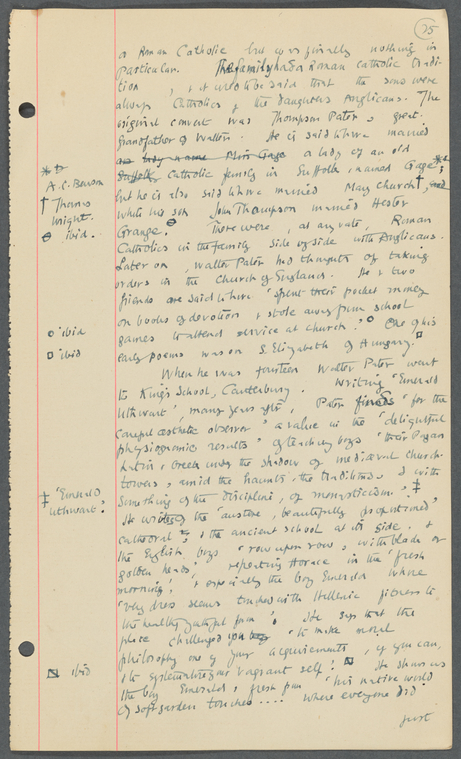 35
a Roman Catholic but was finally nothing in
Particular. The family had a Roman Catholic tradi-
tion, & it used to be said that the sons were
always Catholics & the daughters Anglicans. The
original convert was Thompson Pater, great
Grandfather of Walter. He is said to have married
a lady of an old
Suffolk Catholic family in Suffolk, named Gage;
* A.C. Benson
but he is also said to have married Mary Church †,
† Thomas
while his son John Thompson married Hester
Wright.
Grange. There were, at any rate, Roman
ibid.
Catholics in the family side by side with Anglicans.
Later on, Walter Pater had thoughts of taking
orders in the Church of England. He & two
friends are said to have 'spent their pocket money
on books of devotion & stole away from school
ibid
games to attend service at church.' One of his
ibid
early poems was on S. Elizabeth of Hungary.
When he was fourteen Walter Pater went
to King's School, Canterbury. Writing 'Emerald
Uthwart', many years after, Pater finds 'for the
careful aesthetic observer' a value in the 'delightful
physiognomic results' of teaching boys 'their Pagan
Latin & Greek under the shadow of medieval church-
towers, amid the haunts, the traditions, & with
‡ 'Emerald
something of the discipline, of monasticism.' ‡
Uthwart'.
He writes of the 'austere, beautifully proportioned'
cathedral & the ancient school at its side, &
the English boys 'row upon row, with black or
golden heads', repeating Horace in the 'fresh
morning', & especially the boy Emerald whose
'very dress seems touched with Hellenic fitness to
the healthy youthful form'. He says that the
place challenged you 'to make moral
philosophy one of your acquirements, if you can,
& to systematize your vagrant self'. He shows us
ibid
the boy Emerald, fresh from 'his native world
of soft garden touches.... where everyone did
just